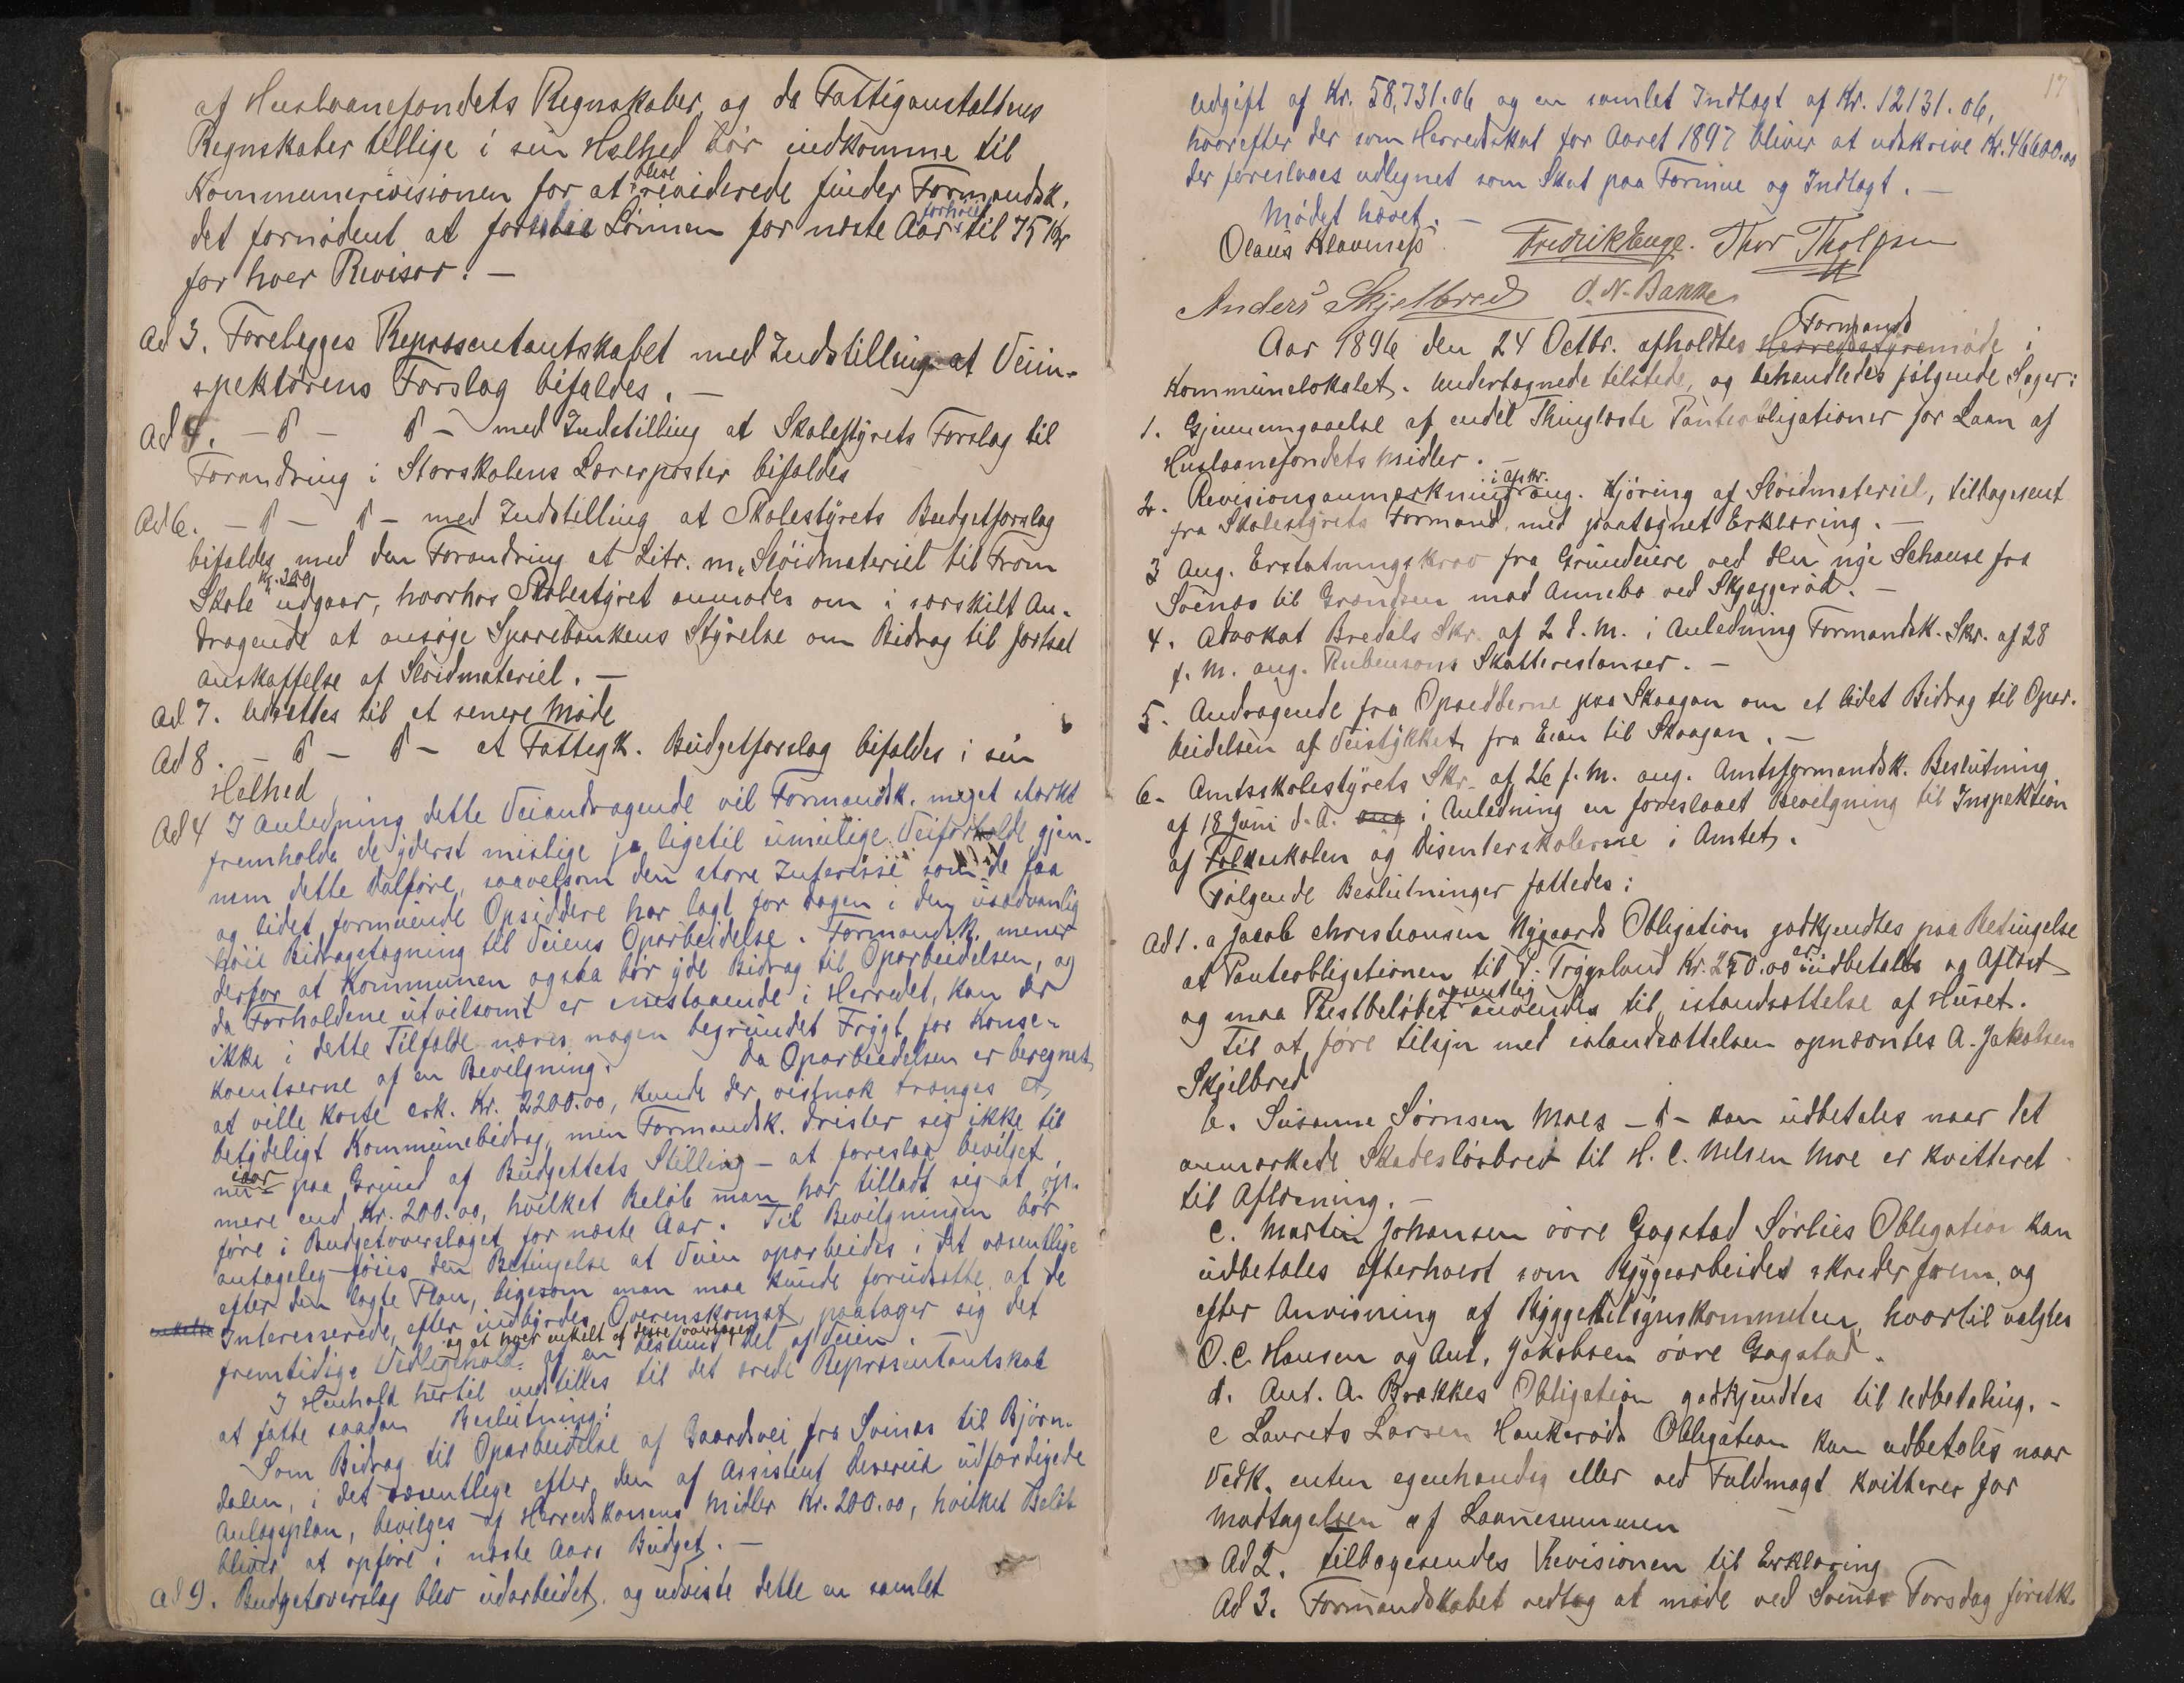 af Huslaanefondets Regnskaber, og da Fattiganstaltens
Regnskaber tillige i sin Helhed bør indkomme til
Kommunerivisionen for at blive reviderede finder Formandsk.
det fornødent at Lønnen for næste Aar forhøies til 75 Kr
for hver Revisor. —
Ad 3. Forelægges Repræsentantskabet med Indstilling at Veiin-
spektørens Forslag bifaldes. —
Ad 4. — d — d — med Indstilling at Skolestyrets Forslag til
Forandring i Storskolens Lærerposter bifaldes
Ad 6. — d — d — med Indstilling at Skolestyrets Budgetforslag
bifaldes med den Forandring at Litr. m, Sløidmateriel til Fron
Skole Kr. 200 udgaar, hvorhos Skolestyret anmodes om i særskilt An-
dragende at ansøge Sparebankens Styrelse om Bidrag til fortsat
anskaffelse af Sløidmateriel. —
Ad 7. Udsættes til et senere Møde
Ad 8. — d — d — at Fattigk. Budgetforslag bifaldes i sin
Helhed
Ad 4 I Anledning dette Veiandragende vil Formandsk. meget stærkt
fremholde de yderst mislige ja ligetil umulige Veiforholde gjen-
nem dette Dalføre, saavelsom den store Interesse som de faa
og lidet formuende Opsiddere har lagt for Dagen i den usædvanlig
høie Bidragstegning til Veiens Oparbeidelse. Formandsk. mener
derfor at Kommunen ogsaa bør yde Bidrag til Oparbeidelsen, og
da Forholdene utvilsomt er enestaaende i Herredet, kan der
ikke i dette Tilfælde næres nogen begrundet Frygt for Konse-
kventserne af en Bevilgning. Da Oparbeidelsen er beregnet
at ville koste cirk. Kr. 2200.00, kunde der vistnok trænges et
betydeligt Kommunebidrag, men Formandsk. drister sig ikke til
nu iaar — paa Grund af Budgettets Stilling — at foreslaa bevilget
mere end Kr. 200.00, hvilket Beløb man har tilladt sig at op-
føre i Budgetoverslaget for næste Aar. Til Bevilgningen bør
antagelig føies den Betingelse at Veien oparbeides i det væsentlige
efter den lagte Plan, ligesom man maa kunde forudsætte, at de
enkelte Interesserede, efter indbyrdes Overenskomst, paatager sig det
fremtidige Vedligehold og at hver enkelt af disse overtager af en bestemt Del af Veien. —
I Henhold hertil indstilles til det ærede Repræsentantskab
at fatte saadan Beslutning:
Som Bidrag til Oparbeidelse af Gaardsvei fra Svinæs til Bjørn-
dalen, i det væsentlige efter den af Assistent udfærdigede
Anlægsplan, bevilges af Herredskassens Midler Kr. 200.00, hvilket Beløb
bliver at opføre i næste Aars Budget. —
Ad 9. Budgetoverslag blev udarbeidet, og udviste dette en samlet
17
Udgift af Kr. 58,731.06 og en samlet Indtægt af Kr. 12131.06,
hvorefter der som Herredsskat for Aaret 1897 bliver at udskrive Kr. 46600.00
der foreslaaes udlignet som Skat paa Formue og Indtægt. —
Mødet hævet. —
Olaus Klavenæss Fredrik Enge. Thor Tholfsen
Anders Skjelbred O. N. Bakke
Aar 1896 den 24 Octbr. afholdtes Herredsstyremøde Formands i
Kommunelokalet. Undertegnede tilstede, og behandledes følgende Sager:
1. Gjennemgaaelse af endel Thinglæste Panteobligationer for Laan af
Huslaanefondets Midler. —
2. Revisionsanmærkning i Afskr. ang. Kjøring af Sløidmateriel, tilbagesent
fra Skolestyrets Formand, med paategnet Erklæring. —
3 Ang. Erstatningskrav fra Grundeiere ved den nye Schause fra
Svinæs til Grændsen mod Annebo ved Skjæggerød. —
4. Advokat Bredals Skr. af 2 d. M. i Anledning Formandsk. Skr. af 28
f. M. ang. Rubensons Skatterestanser. —
5. Andragende fra Opsidderne paa Skaagan om et lidet Bidrag til Opar-
beidelsen af Veistykket fra Eian til Skaagan. —
6. Amtsskolestyrets Skr. af 26 f. M. ang. Amtsformandsk. Beslutning
af 18 Juni d. A. ang i Anledning en foreslaaet Bevilgning til Inspektion
af Folkeskolen og Disenterskolerne i Amtet.
Følgende Beslutninger fattedes:
Ad 1. a Jacob Christiansen Nygaards Obligation godkjendtes paa Betingelse
at Panteobligationen til P. Tryggsland Kr. 250.00 er indbetalt og Aflæst
og maa Restbeløbet anvendes til istandsættelse af Huset.
Til at føre tilsyn med istandsættelsen opnævntes A. Jakobsen
Skjelbred
b. Susanne Sørnsen Moes — d — kan udbetales naar det
anmærkede Skadesløsbrev til H. C. Nelsen Moe er kvitteret
til Aflæsning. —
c. Martin Johansen øvre Gogstad Sørlies Obligation kan
udbetales efterhvert som Byggearbeidet skrider frem, og
efter Anvisning af Byggetilsynskommiteen, hvortil valgtes
O. C. Hansen og Ant. Jakobsen øvre Gogstad.
d. Ant. A. Brækkes Obligation godkjendtes til Udbetaling. —
e Laurets Larsen Haukerøds Obligation kan udbetales naar
Vedk. enten egenhændig eller ved Fuldmagt kvitterer for
Modtagelsen af Laanesummen
Ad 2. tilbagesendes Revisionen til Erklæring
Ad 3. Formandskabet vedtog at møde ved Svinæs Torsdag førstk.